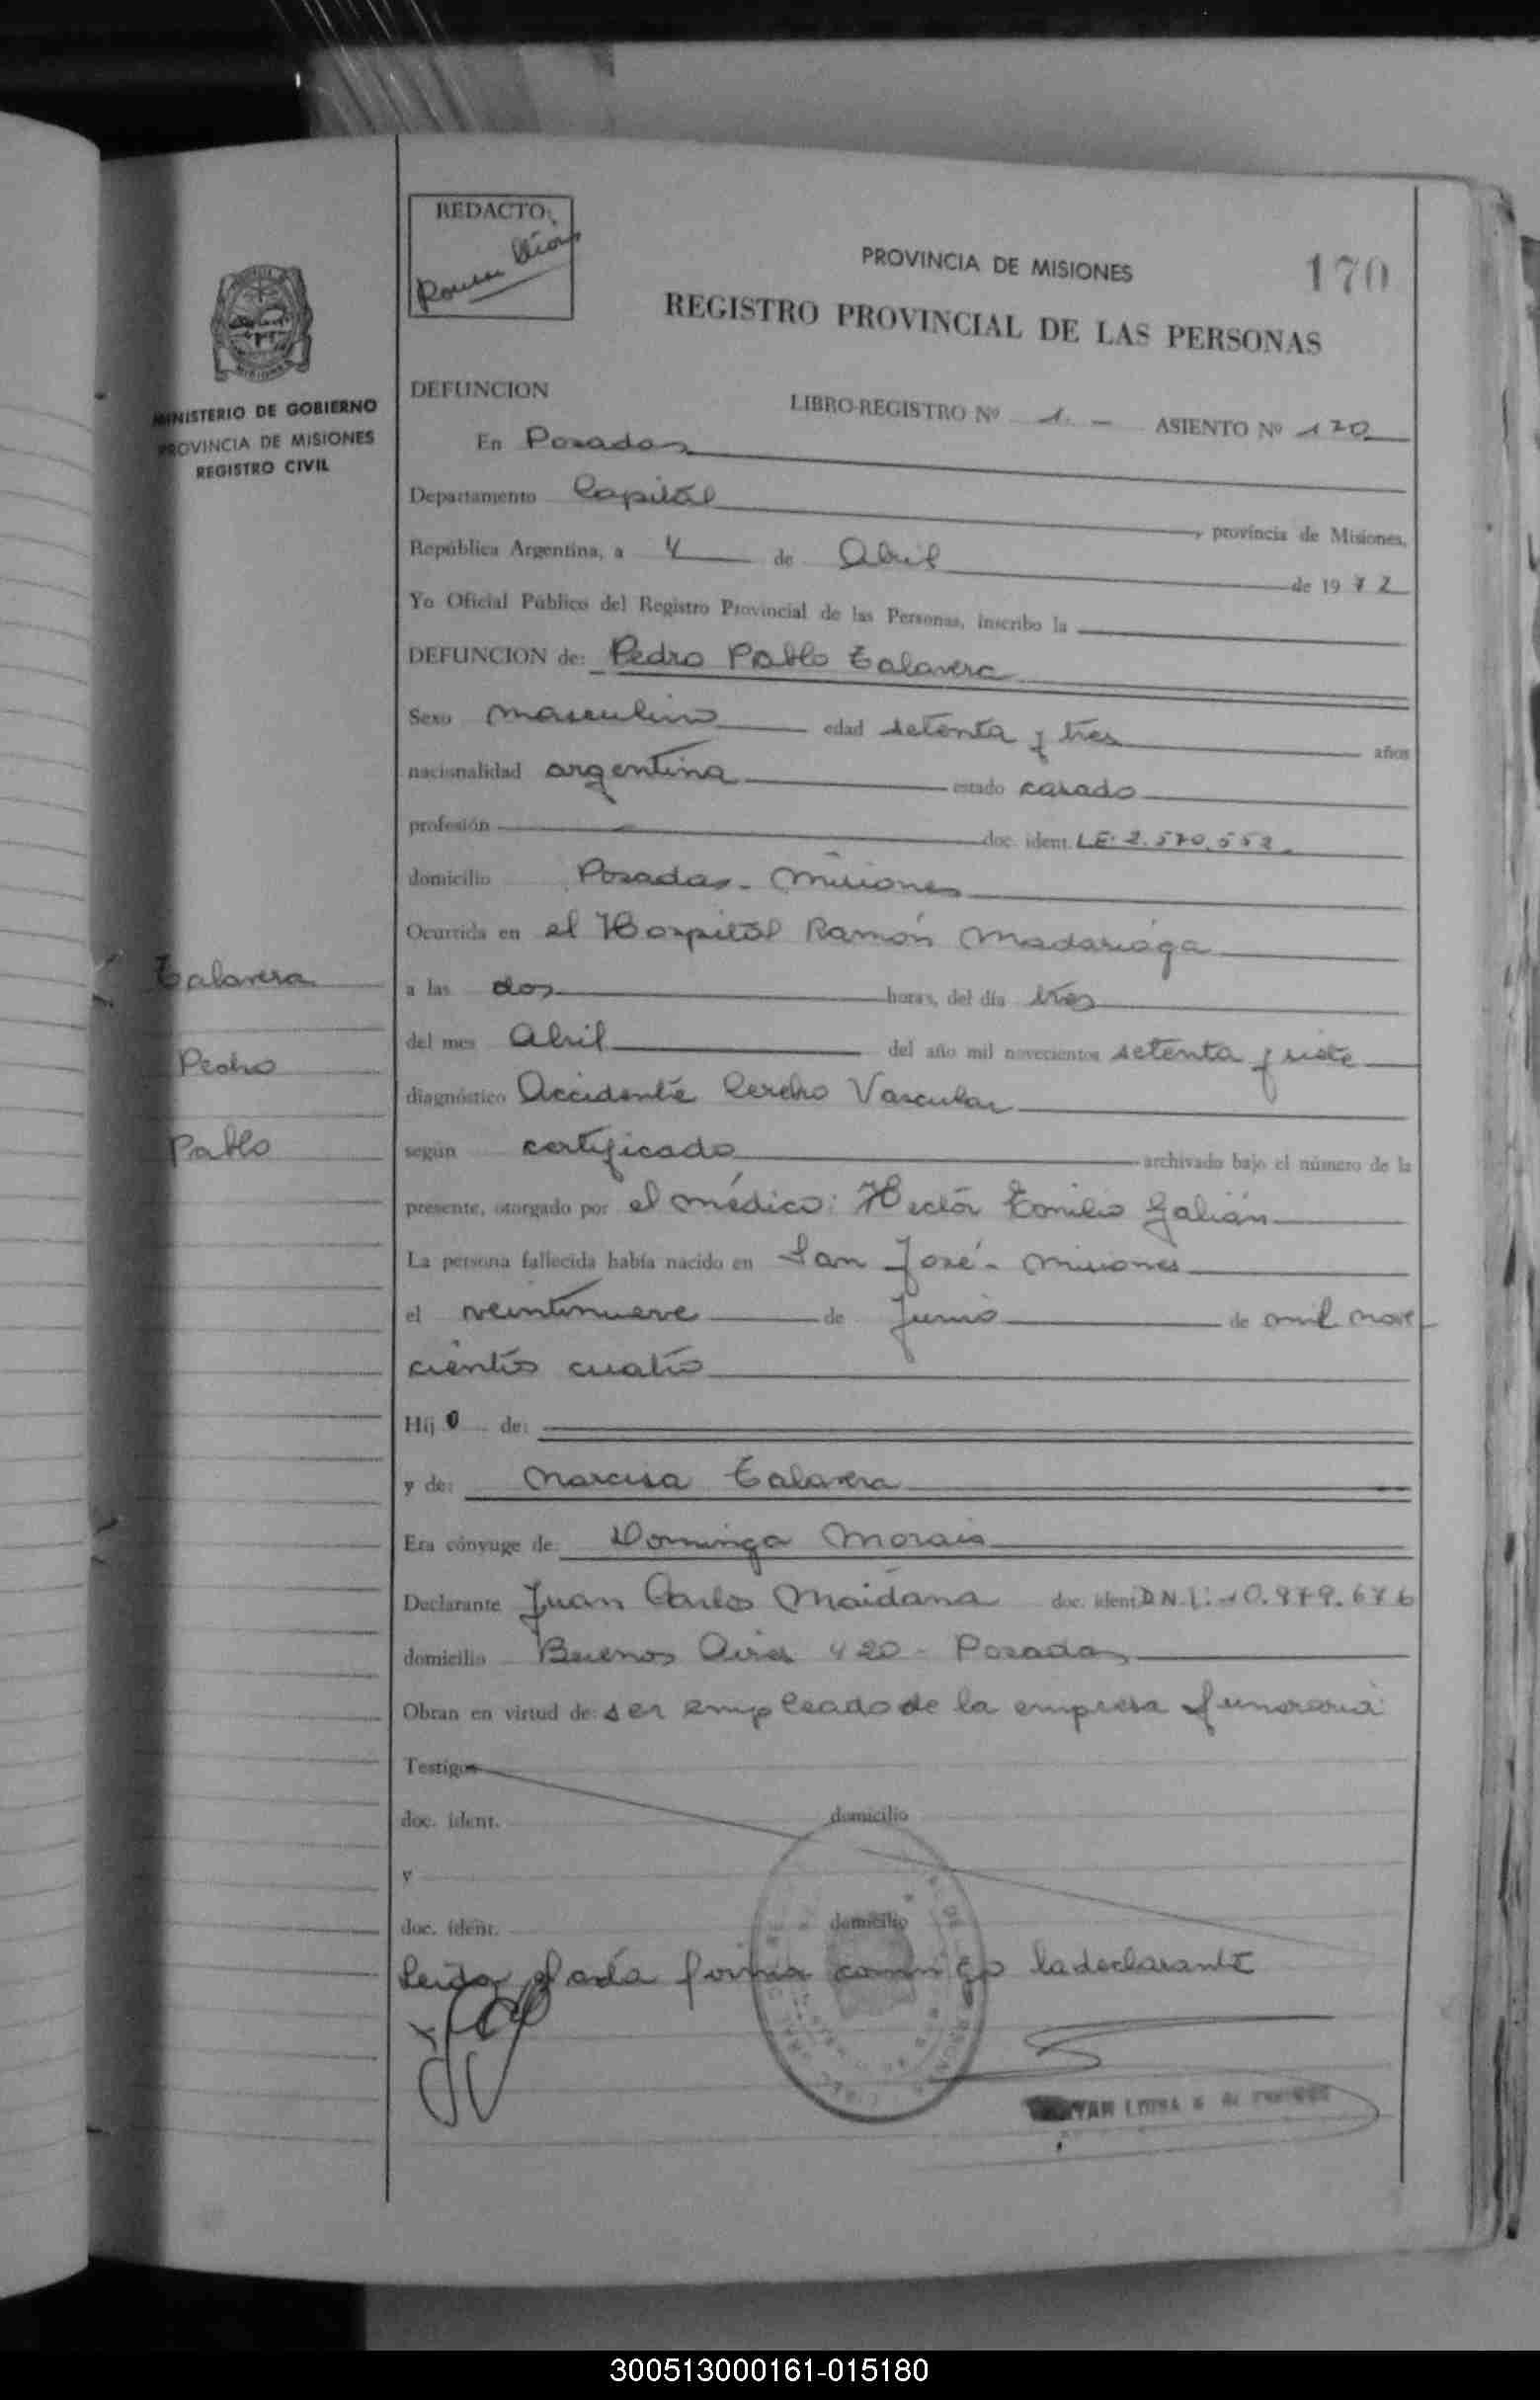 REDACTO:
PROVINCIA DE MISIONES
170
REGISTRO PROVINCIAL DE LAS PERSONAS
MINISTERIO DE GOBIERNO
PROVINCIA DE MISIONES
REGISTRO CIVIL
DEFUNCION
LIBRO-REGISTRO Nº 1. - ASIENTO Nº 170
En Posadas
Departamento Capital, provincia de Misiones,
República Argentina, a 4 de Abril de 1972
Yo Oficial Público del Registro Provincial de las Personas, inscribo la
DEFUNCION de: Pedro Pablo Talavera
Sexo masculino edad setenta y tres años
nacionalidad argentina estado casado
profesión doc. ident. LE: 2.570.552.
domicilio Posadas - Misiones
Ocurrida en el Hospital Ramón Madariaga
a las dos horas, del día tres
del mes Abril del año mil novecientos setenta y siete
diagnóstico Accidente Cerebro Vascular
según certificado archivado bajo el número de la
presente, otorgado por el médico: Hector Emilio Galián
La persona fallecida había nacido en San José - Misiones
el veintinueve de Junio de mil nove
cientos cuatro
Hijo de:
y de: Narcisa Talavera
Era cónyuge de: Dominga Morais
Declarante Juan Carlos Maidana doc. ident. D.N.I: 10.979.676
domicilio Buenos Aires 420 - Posadas
Obran en virtud de: ser empleado de la empresa funeraria
Testigos
doc. ident. domicilio
y
doc. ident. domicilio
Leida el acta firma conmigo la declarante
Talavera
Pedro
Pablo
300513000161-015180